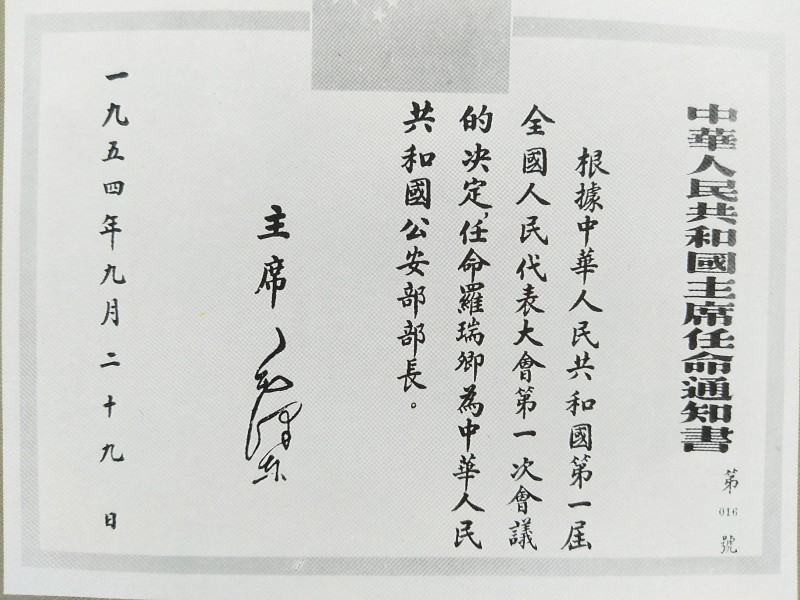 中華人民共和國主席任命通知書
第
016
號
根據中華人民共和國第一届
全國人民代表大會第一次會議
的決定，任命羅瑞卿為中華人民
共和國公安部部長。
主席 毛澤東
一九五四年九月二十九日